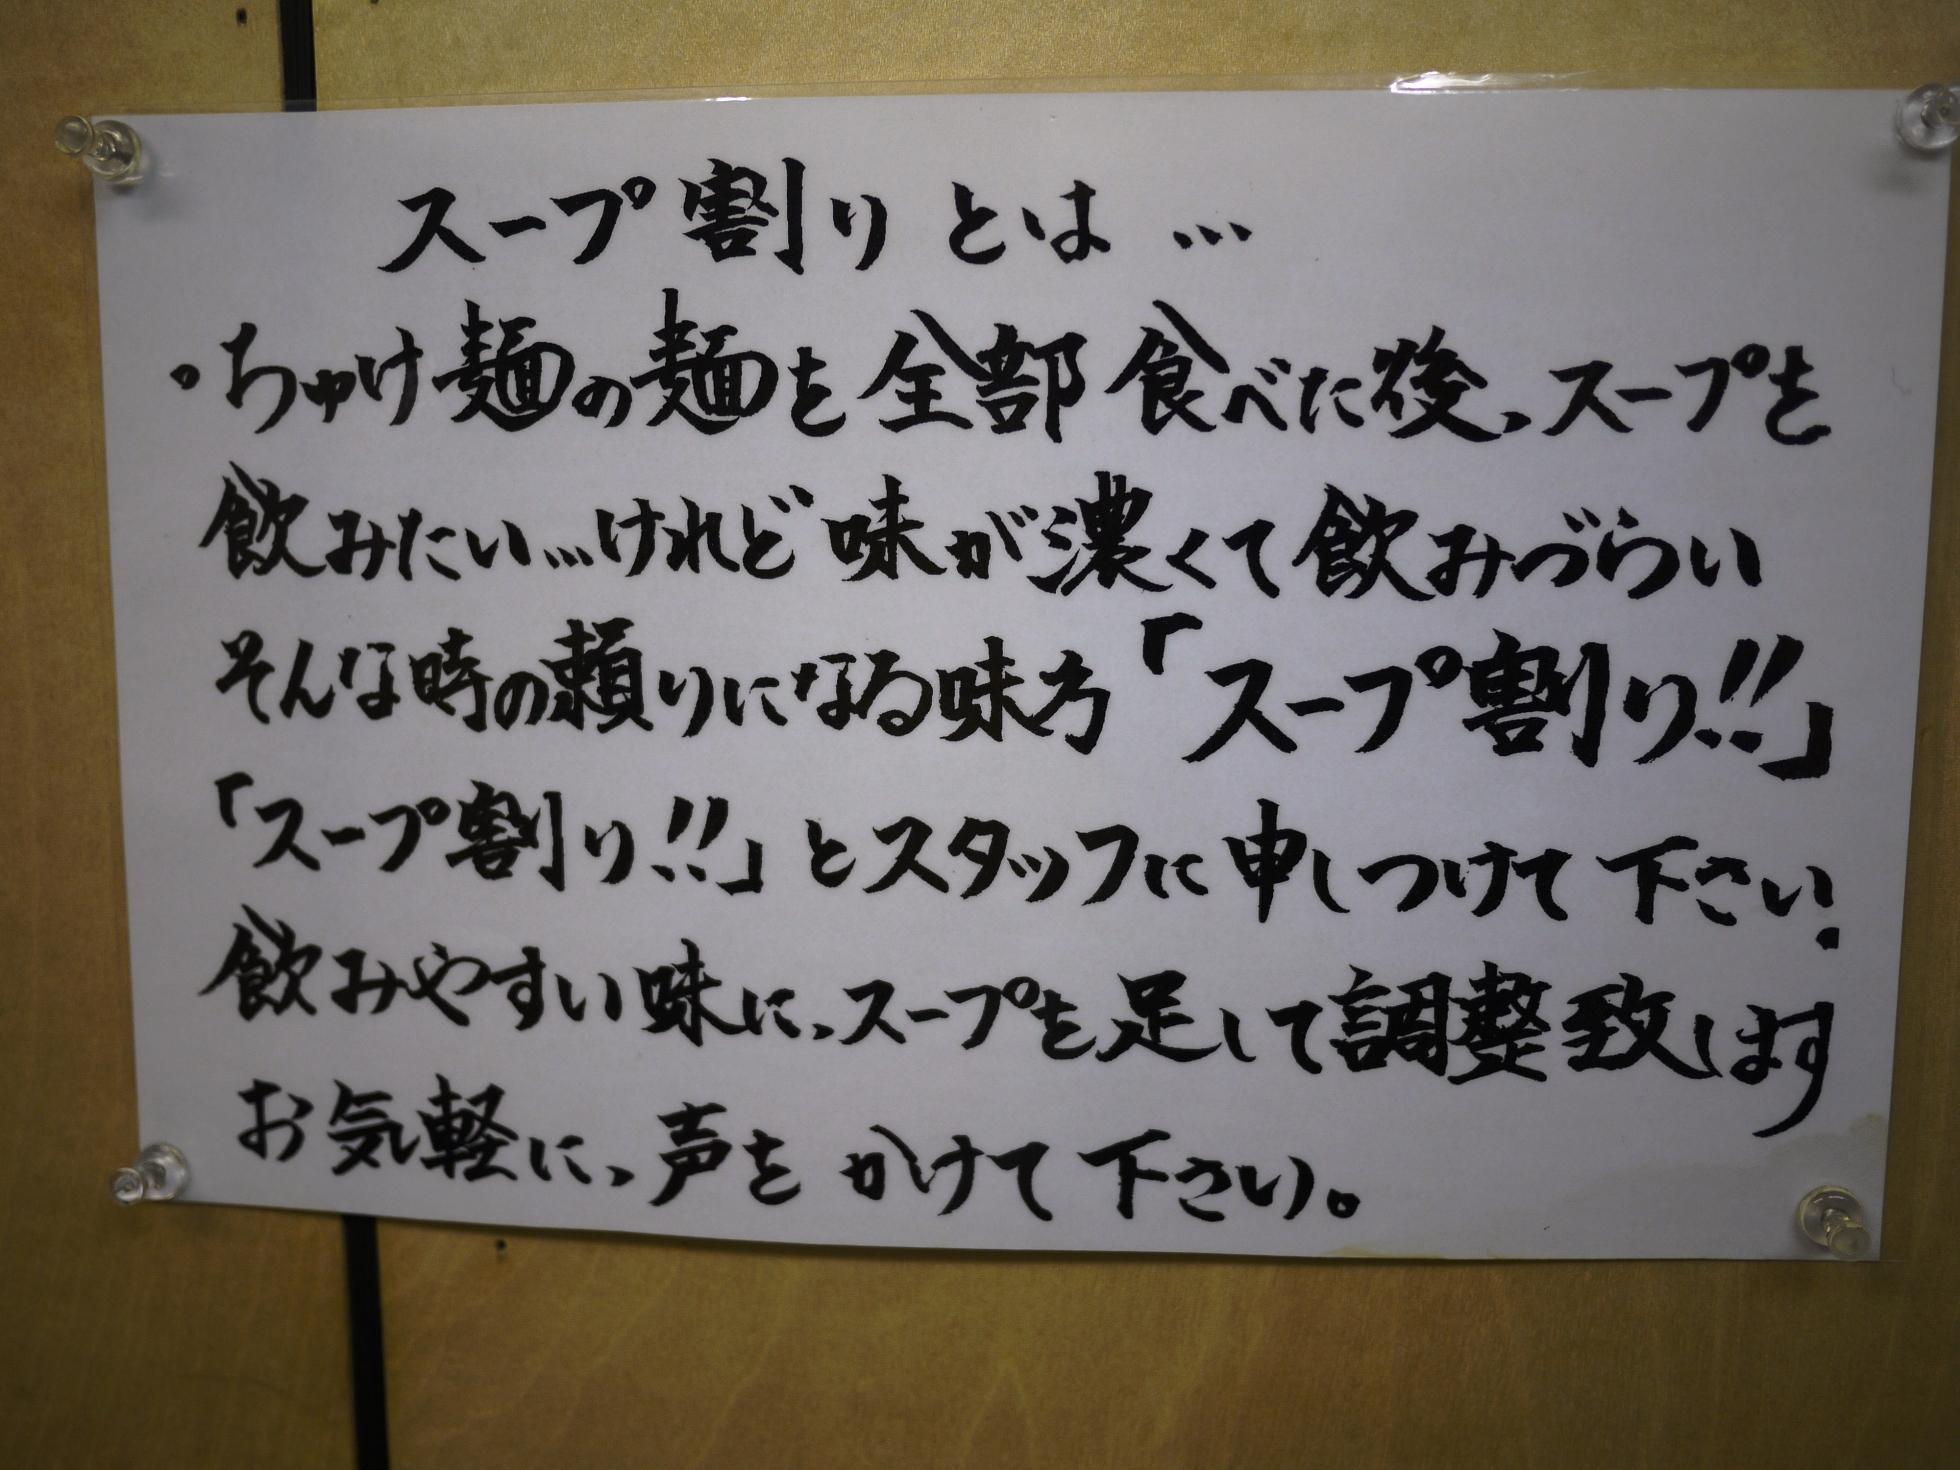 スープ割りとは…
・ちゅけ麺の麺を全部食べた後、スープを
飲みたい…けれど味が濃くて飲みづらい
そんな時の頼りになる味方「スープ割り!!」
「スープ割り!!」とスタッフに申しつけて下さい.
飲みやすい味に、スープを足して調整致します
お気軽に、声をかけて下さい。